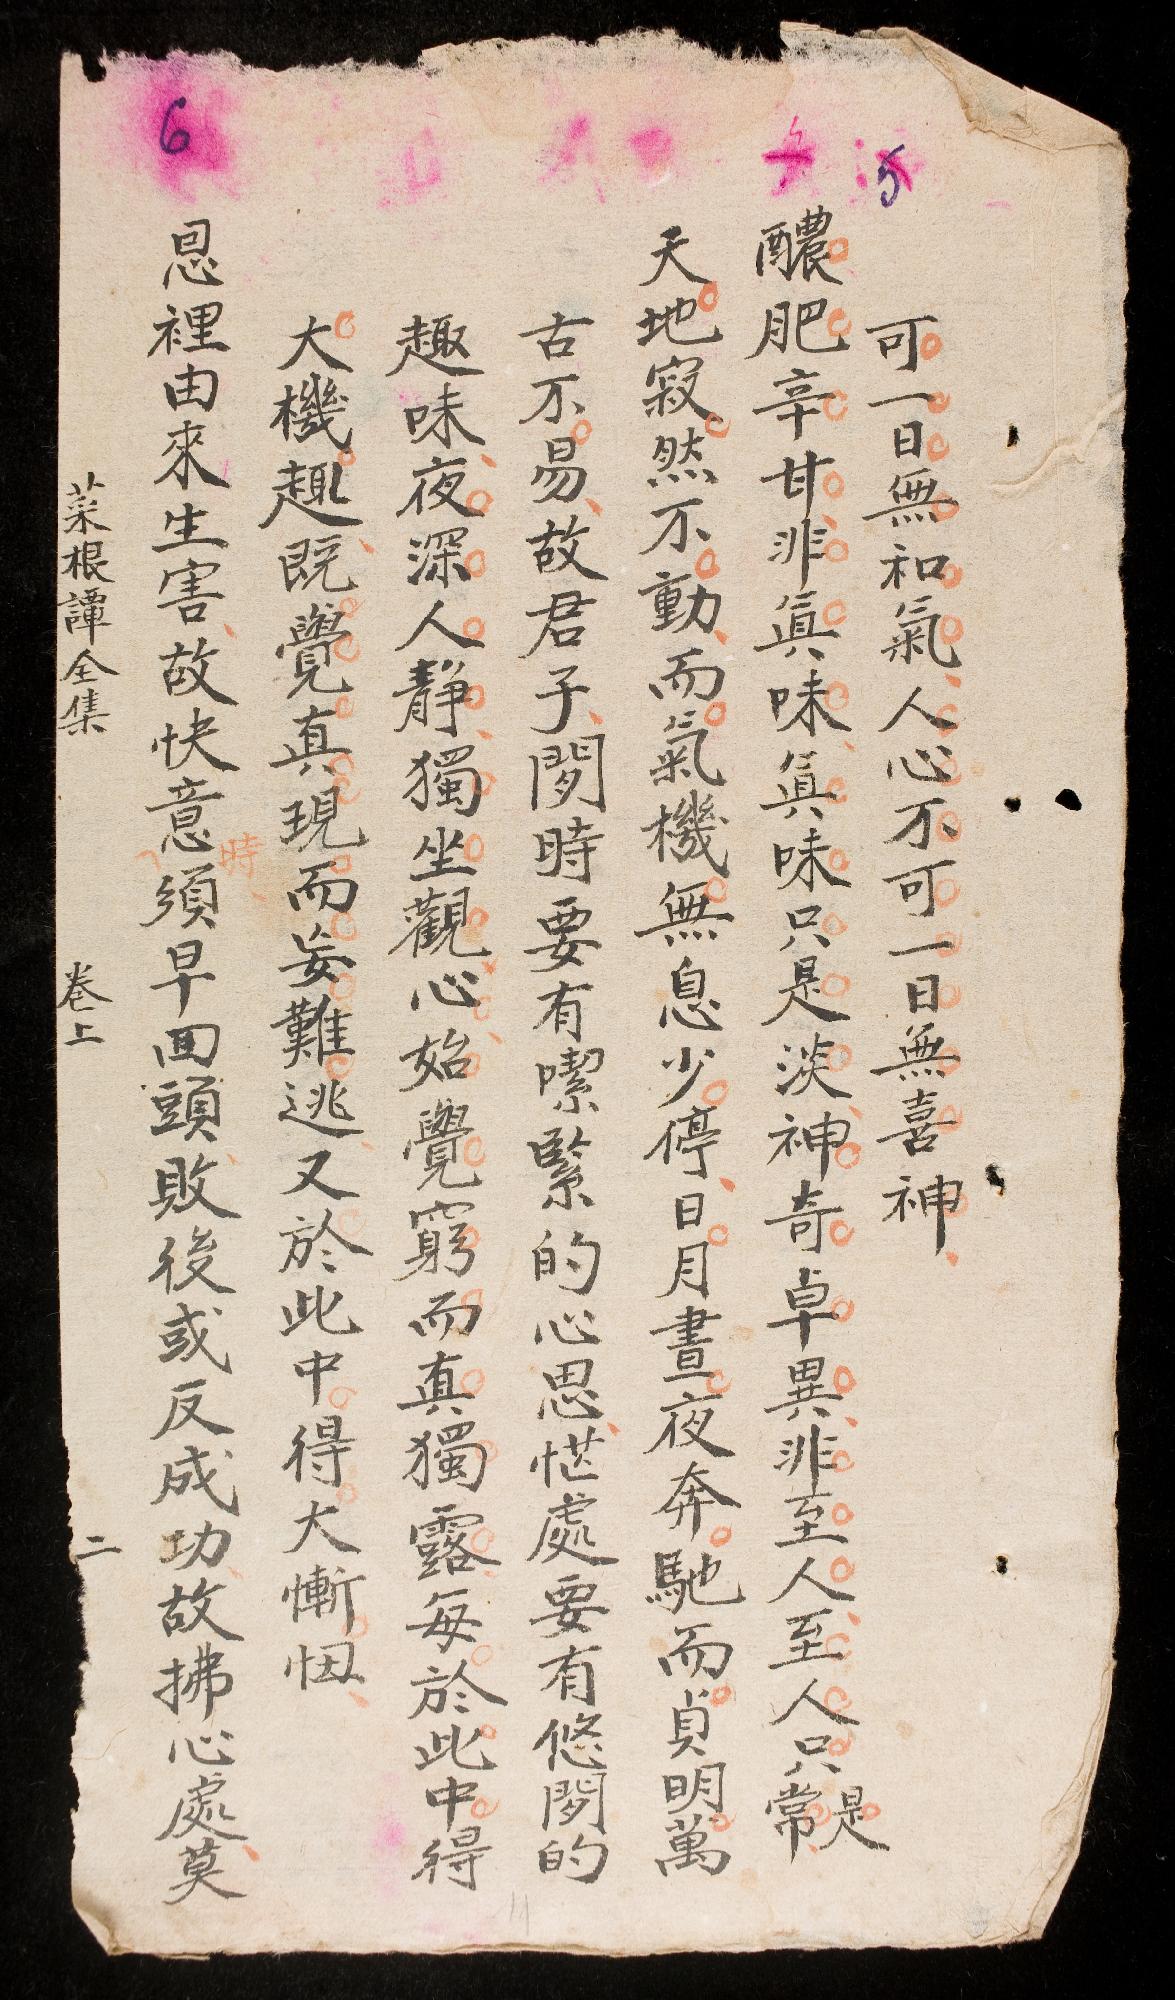 5
可一日無和氣人心不可一日無喜神
醲肥辛甘非眞味眞味只是淡神奇卓異非至人至人只是常
天地寂然不動而氣機無息少停日月晝夜奔馳而貞明萬
古不易故君子閒時要有喫緊的心思恾處要有悠閒的
趣味夜深人靜獨坐觀心始覺窮而真獨露每於此中得
大機趣既覺真現而妄難逃又於此中得大慚忸
6
恩裡由來生害故快意時須早回頭敗後或反成功故拂心處莫
菜根譚全集 卷上 二